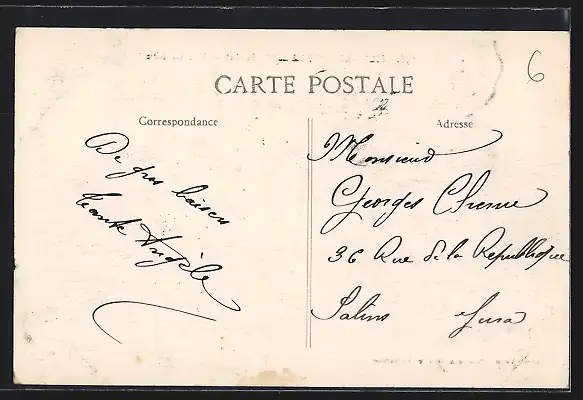 CARTE POSTALE
6
Correspondance
Adresse
De gros baisers
tante Angèle
Monsieur
Georges
36 Rue de la République
Salins Jura